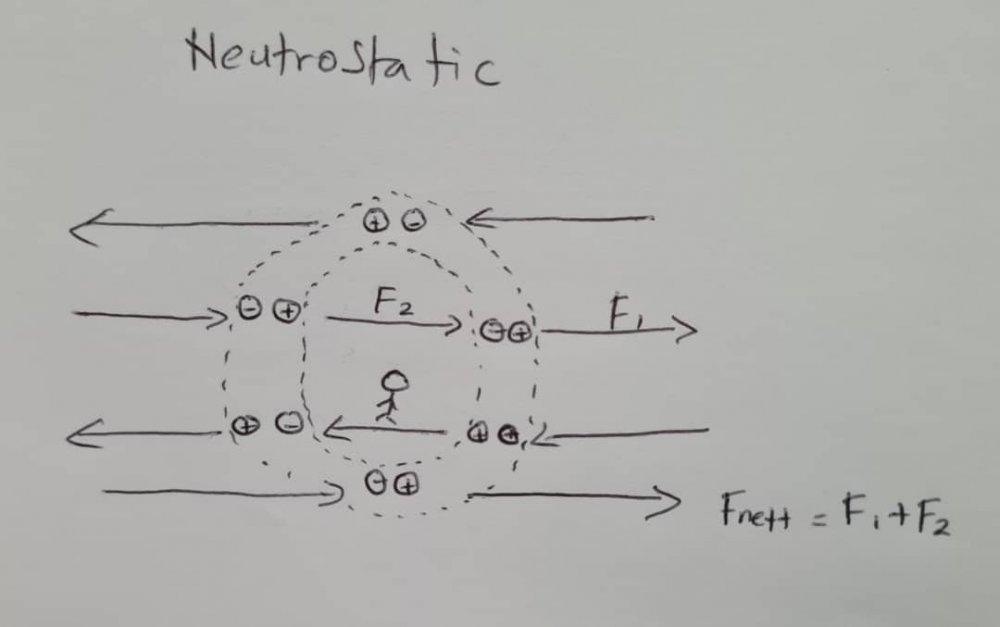 Neutrostatic
⊕ ⊖
⊖ ⊕ F₂ ⊖ ⊕ F₁
⊕ ⊖ ⊕ ⊕
⊖ ⊕
Fnett = F₁ + F₂